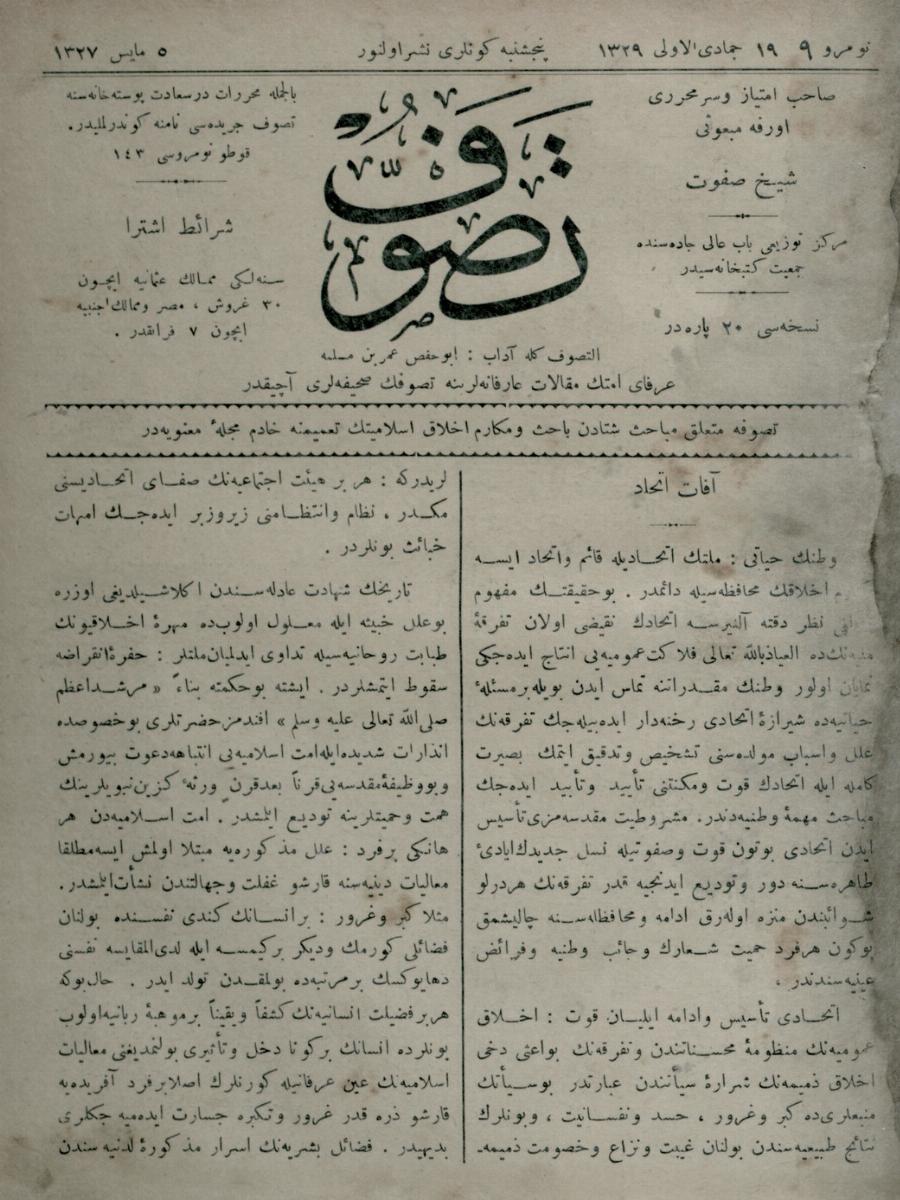 نومرو ٩
١٩ جمادی‌الاولی ١٣٢٩
پنجشنبه کونلری نشر اولنور
٥ مایس ١٣٢٧
صاحب امتیاز و سر محرری
اورفه مبعوثی
شیخ صفوت
مرکز توزیعی باب عالی جاده‌سنده
جمعیت کتبخانه‌سیدر
نسخه‌سی ٢٠ پاره‌در
تصوف
بالجمله محررات درسعادت پوسته‌خانه‌سنه
تصوف جریده‌سی نامنه کوندرلملیدر.
قوطو نومروسی ١٤٣
شرائط اشترا
سنه‌لکی ممالک عثمانیه ایچون
٣٠ غروش ، مصر وممالک اجنبیه
ایچون ٧ فرانقدر .
التصوف کله آداب : ابوحفص عمر بن مسلمه
عرفای امتک مقالات عارفانه‌لرینه تصوفک صحیفه‌لری آچیقدر
تصوفه متعلق مباحث شتادن باحث ومکارم اخلاق اسلامیتک تعمیمنه خادم مجلهٔ معنویه‌در
آفات اتحاد
وطنک حیاتی : ملتک اتحادیله قائم واتحاد ایسه
اخلاقک محافظه‌سیله دائمدر . بوحقیقتک مفهوم
نظر دقته آلنیرسه اتحادک نقیضی اولان تفرقهٔ
العیاذبالله تعالی فلاکت عمومیه‌یی انتاج ایده‌جکی
نمایان اولور وطنک مقدراتنه تماس ایدن بویله برمسئلهٔ
حیاتیه‌ده شیرازهٔ اتحادی رخنه‌دار ایده‌بیله‌جک تفرقه‌نک
علل واسباب مولده‌سنی تشخیص وتدقیق ایتمک بصیرت
کامله ایله اتحادک قوت ومکنتنی تأیید وتأبید ایده‌جک
مباحث مهمهٔ وطنیه‌دندر. مشروطیت مقدسه‌مزی تأسیس
ایدن اتحادی بوتون قوت وصفوتیله نسل جدیدک ایادیٔ
طاهره‌سنه دور وتودیع ایدنجیه قدر تفرقه‌نک هردرلو
شوائبندن منزه اوله‌رق ادامه ومحافظه‌سنه چالیشمق
بوکون هرفرد حمیت شعارک وجائب وطنیه وفرائض
عینیه‌سندندر .
اتحادی تأسیس وادامه ایلیان قوت : اخلاق
عمومیه‌نک منظومهٔ محسناتندن وتفرقه‌نک بواعثی دخی
اخلاق ذمیمه‌نک شرارهٔ سیآتندن عبارتدر بوسیأتک
منبعلری‌ده کبر وغرور ، حسد ونفسانیت ، وبونلرک
نتائج طبیعیه‌سندن بولنان غیبت ونزاع وخصومت ذمیمه‌-
لریدرکه : هر بر هیئت اجتماعیه‌نک صفای اتحادیسنی
مکدر ، نظام وانتظامنی زیروزبر ایده‌جک امهات
خبائث بونلردر .
تاریخک شهادت عادله‌سندن اکلاشیلدیغی اوزره
بوعلل خبیثه ایله معلول اولوب‌ده مهرهٔ اخلاقیونک
طبابت روحانیه‌سیله تداوی ایدلمیان‌ملتلر : حفرهٔ انقراضه
سقوط ایتمشلردر . ایشته بوحکمته بناءً « مرشداعظم
صلی‌الله تعالی علیه وسلم » افندمز حضرتلری بوخصوصده
انذارات شدیده‌ایله‌امت اسلامیه‌یی انتباهه‌دعوت بیورمش
وبووظیفهٔ‌مقدسه‌یی قرناً بعدقرن ورثهٔ کزین‌نبویلرینک
همت وحمیتلرینه تودیع ایلمشدر . امت اسلامیه‌دن هر
هانکی برفرد : علل مذکوره‌یه مبتلا اولمش ایسه‌مطلقا
معالیات دینیه‌سنه قارشو غفلت وجهالتندن نشأت‌ایلمشدر.
مثلا کبر وغرور : برانسانک کندی نفسنده بولنان
فضائلی کورمک ودیکر برکیمسه ایله لدی‌المقایسه نفسنی
دهایوکسک برمرتبه‌ده بولمقدن تولد ایدر . حال‌بوکه
هربر فضیلت انسانیه‌نک کشفاً ویقیناً برموهبهٔ ربانیه‌اولوب
بونلرده انسانک برکونا دخل وتأثیری بولنمدیغنی معالیات
اسلامیه‌نک عین عرفانیله کورنلرک اصلا برفرد آفریده‌یه
قارشو ذره قدر غرور وتکبره جسارت ایده‌میه جکلری
بدیهیدر . فضائل بشریه‌نک اسرار مذکورهٔ لدنیه سندن